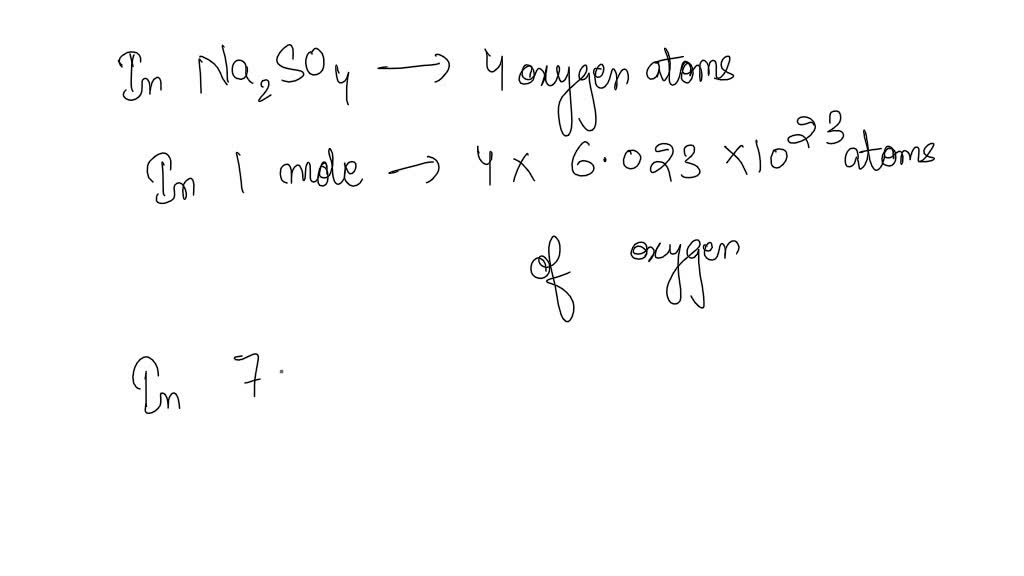 In Na₂SO₄ → 4 oxygen atoms
In 1 mole → 4 × 6.023 × 10²³ atoms
of oxygen
In 7.